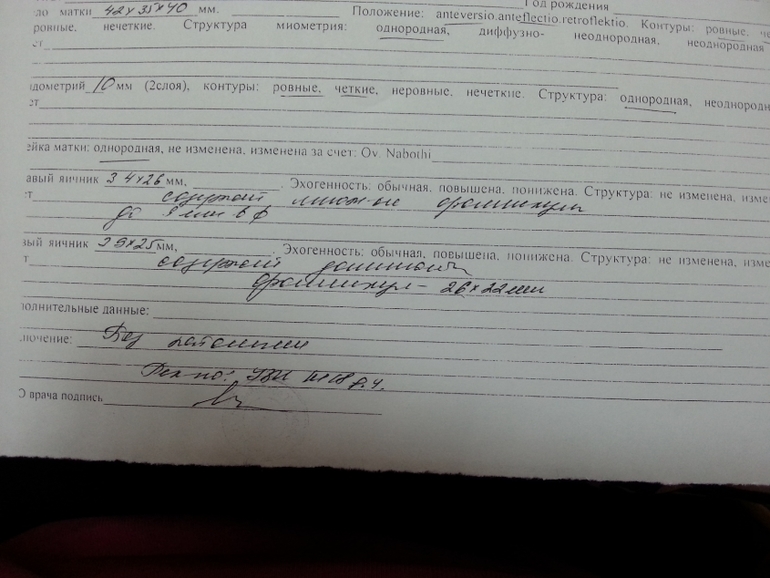 Год рождения
ло матки 42х35х40 мм. Положение: anteversio.anteflectio.retroflektio. Контуры: ровные, че
ровные, нечеткие. Структура миометрия: однородная, диффузно- неоднородная, неоднородная
ет
ндометрий 10 мм (2слоя), контуры: ровные, четкие, неровные, нечеткие. Структура: однородная, неоднородн
ет
ейка матки: однородная, не изменена, изменена за счет: Ov. Nabothi
авый яичник 34х26 мм, Эхогенность: обычная, повышена, понижена. Структура: не изменена, изме
ет содержит множ-ые фолликулы
до мм в ф
вый яичник 39х25мм, Эхогенность: обычная, повышена, понижена. Структура: не изменена, изме
ет содержит доминант
фолликул - 26х22мм
полнительные данные:
лючение: Без патологии
УЗИ
О врача подпись